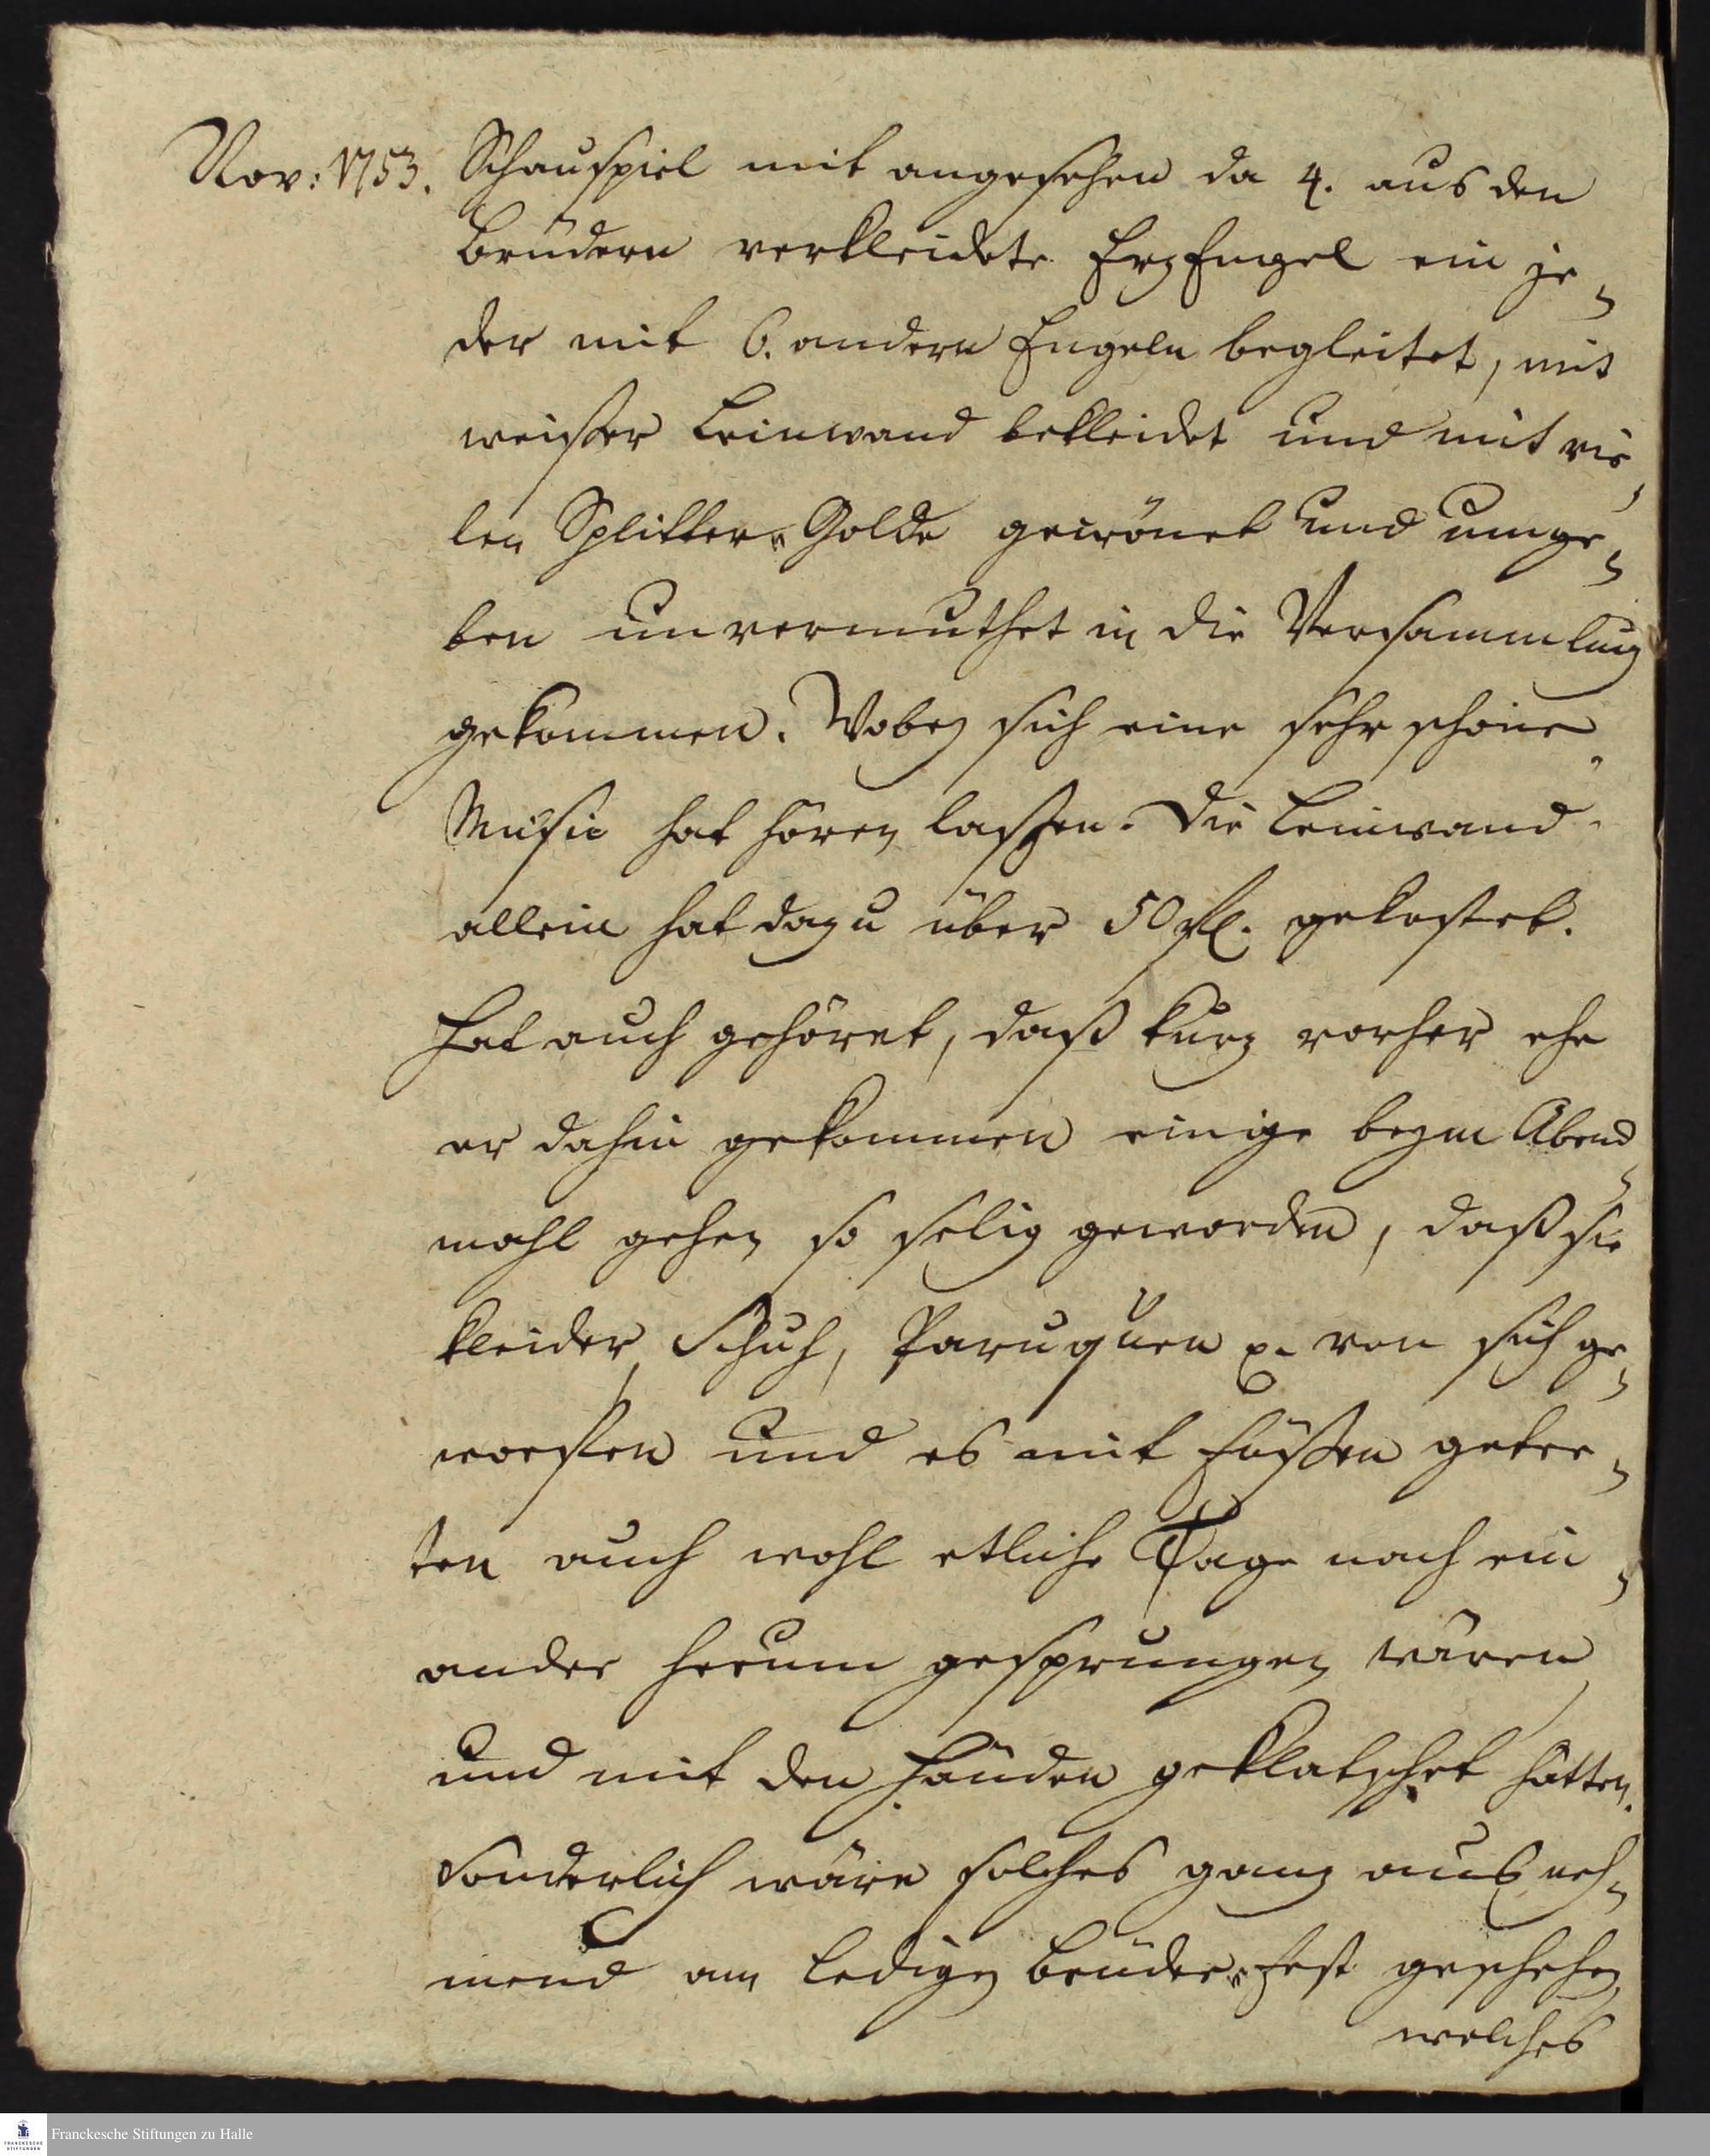 Nov: 1753.
Schauspiel mit angesehen da 4. aus den
Brüdern verkleidete ErzEngel ein je-
der mit 6. andern Engeln begleitet, mit
weißer Leinwand bekleidet und mit vie-
len Splitter-Golde gecrönet und umge-
ben unvermuthet in die Versammlung
gekommen. Wobey sich eine sehr schöne
Music hat hören lassen. Die Leinwand
allein hat dazu über 50 fl. gekostet.
Hat auch gehöret, daß kurz vorher ehe
er dahin gekommen einige beym Abend-
mahl gehen so selig geworden, daß sie
Kleider, Schuh, Paruquen p. von sich ge-
worffen und es mit Füßen getre-
ten auch wohl etliche Tage nach ein-
ander herum gesprungen wären
und mit den Händen geklatschet hätten.
Sonderlich wäre solches ganz ausneh-
mend am ledigen Brüder-Fest geschehen
welches
Franckesche Stiftungen zu Halle